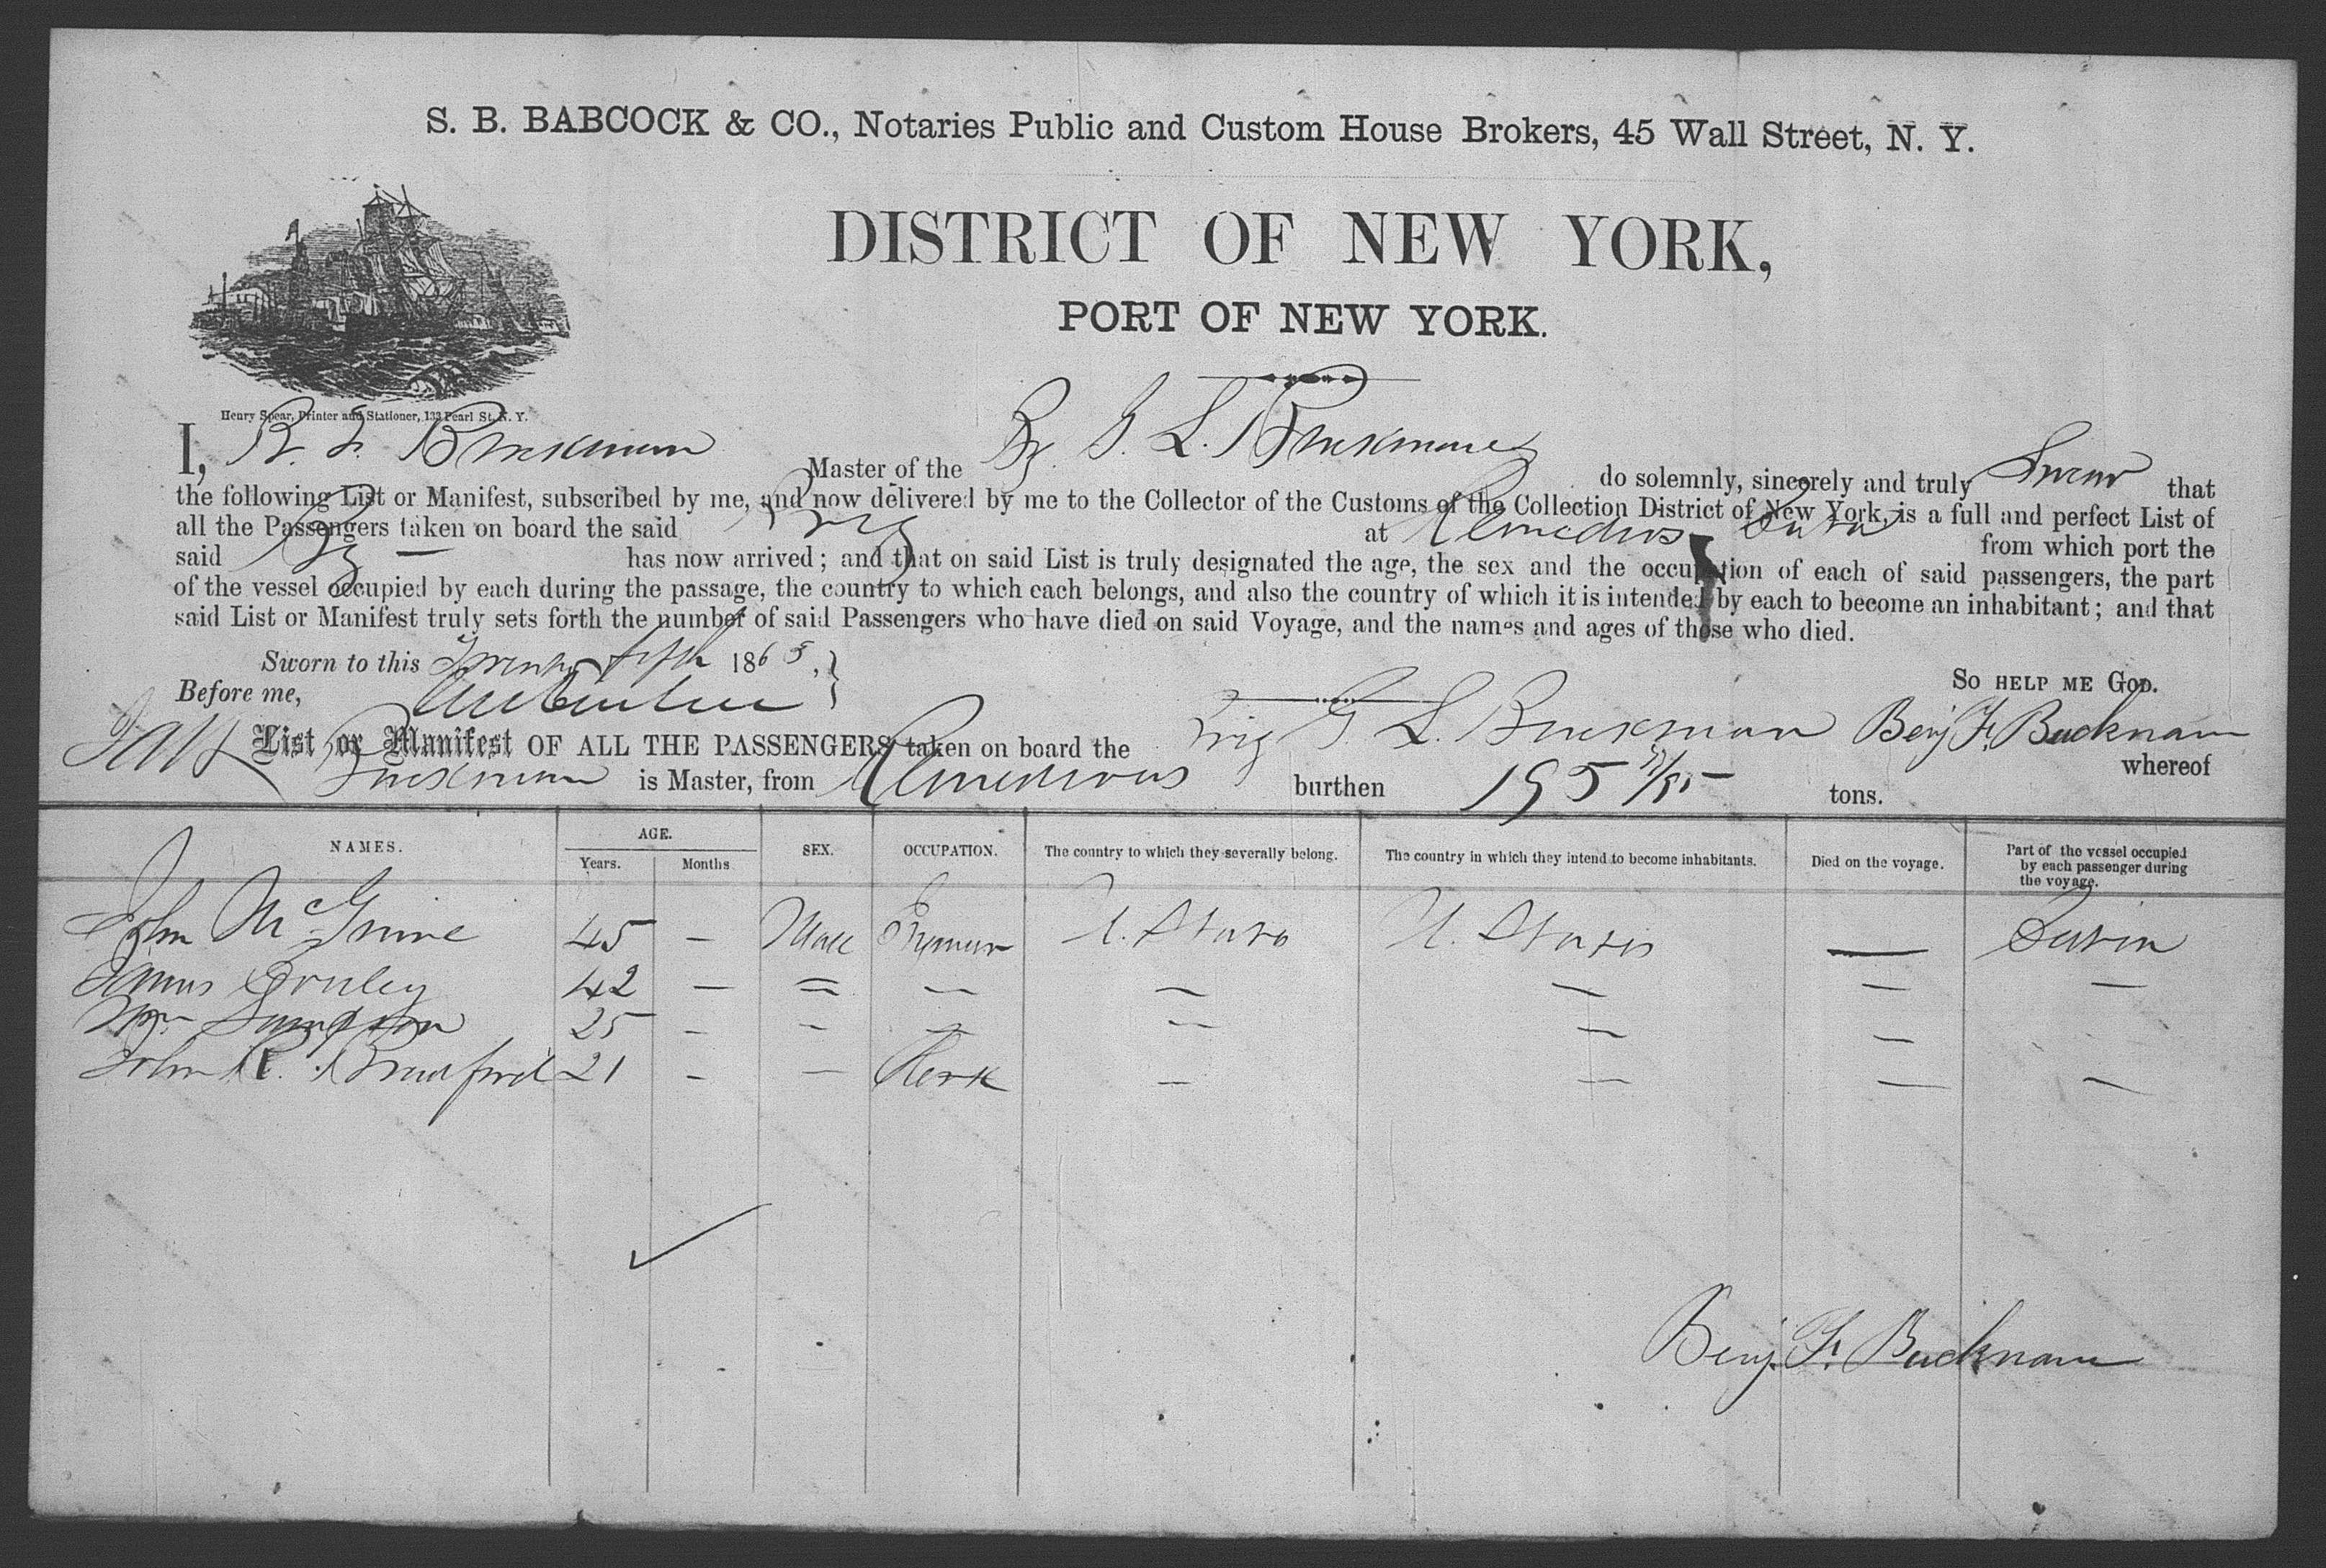 S. B. BABCOCK & CO., Notaries Public and Custom House Brokers, 45 Wall Street, N. Y.
DISTRICT OF NEW YORK,
PORT OF NEW YORK.
Henry Spear, Printer and Stationer, 133 Pearl St. N. Y.
I, B. F. Buckman Master of the Bg. G. L. Buckman do solemnly, sincerely and truly Swear that
the following List or Manifest, subscribed by me, and now delivered by me to the Collector of the Customs of the Collection District of New York, is a full and perfect List of
all the Passengers taken on board the said Brig at Remedios Cuba from which port the
said Bg — has now arrived; and that on said List is truly designated the age, the sex and the occupation of each of said passengers, the part
of the vessel occupied by each during the passage, the country to which each belongs, and also the country of which it is intended by each to become an inhabitant; and that
said List or Manifest truly sets forth the number of said Passengers who have died on said Voyage, and the names and ages of those who died.
Sworn to this Twenty fifth 1865,
So HELP ME GOD.
Before me,
Benj F. Bucknam
List or Manifest OF ALL THE PASSENGERS taken on board the Brig G. L. Buckman whereof
Buckman is Master, from Remedious burthen 195 tons.
NAMES. AGE. SEX. OCCUPATION. The country to which they severally belong. The country in which they intend to become inhabitants. Died on the voyage. Part of the vessel occupied by each passenger during the voyage.
Years. Months
John McGuire 45 — Male U. States U. States — Cabin
James 42 — = — — — — —
Wm Sampson 25 — — — — — —
John R. 21 — — Clerk — — — —
Benj. F. Bucknam